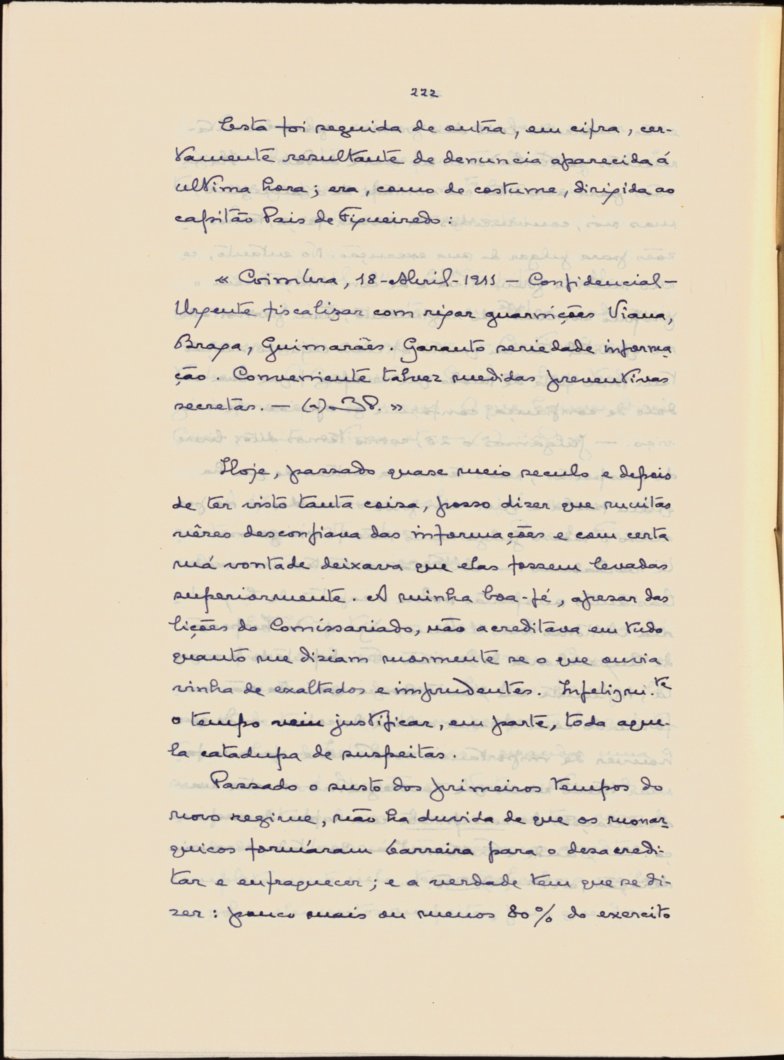 222
Esta foi seguida de outra, em cifra, cer-
tamente resultante de denuncia aparecida á
ultima hora; era, como de costume, dirigida ao
capitão Pais de Figueiredo:
« Coimbra, 18-Abril-1911 — Confidencial —
Urgente fiscalizar com rigor guarnições Viana,
Braga, Guimarães. Garanto seriedade informa-
ção. Conveniente talvez medidas preventivas
secretas. — (a) »
Hoje, passado quase meio seculo e depois
de ter visto tanta coisa, posso dizer que muitas
vêzes desconfiava das informações e com certa
má vontade deixava que elas fossem levadas
superiormente. A minha boa-fé, apesar das
lições do Comissariado, não acreditava em tudo
quanto me diziam mormente se o que ouvia
vinha de exaltados e imprudentes. Infelizm.te
o tempo veiu justificar, em parte, toda aque-
la catadupa de suspeitas.
Passado o susto dos primeiros tempos do
novo regime, não ha duvida de que os monar-
quicos formáram barreira para o desacredi-
tar e enfraquecer; e a verdade tem que se di-
zer: pouco mais ou menos 80% do exercito